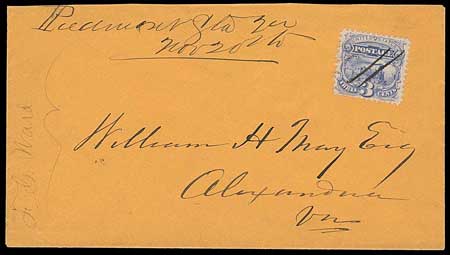 Piedmont Sta Va
Nov 20th
POSTAGE
3
William H May Esq
Alexandria
Va
J. G. Ward